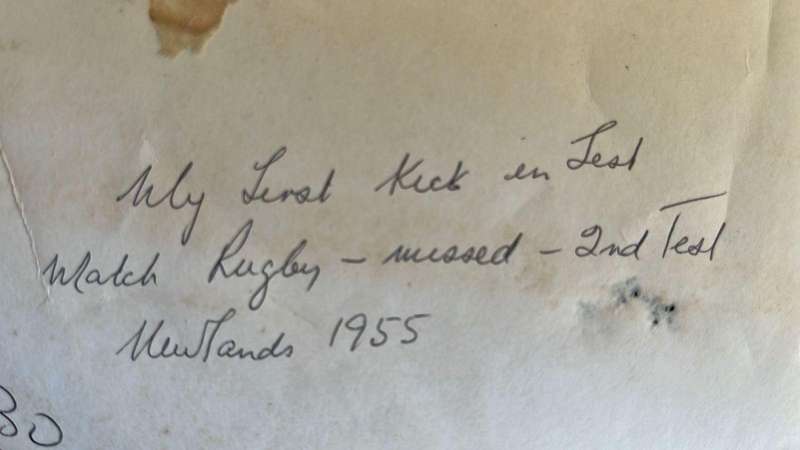 My First Kick in Test
Match Rugby - missed - 2nd Test
Newlands 1955
30